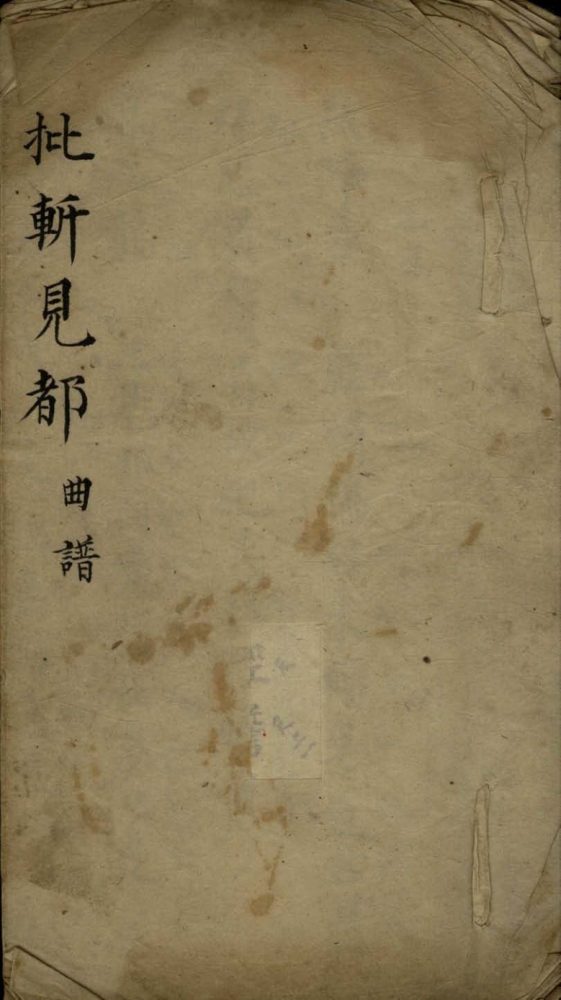 批斬見都
曲譜